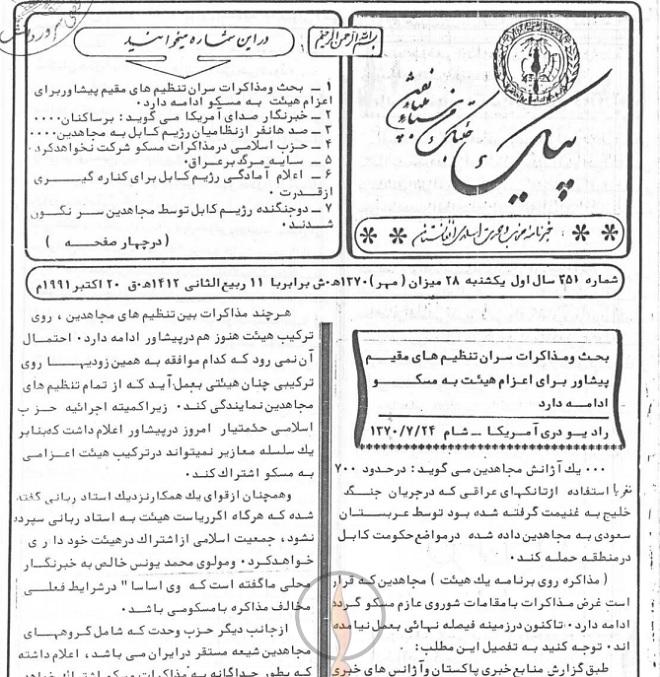 بسم الله الرحمن الرحیم
در این شماره میخوانید
۱ ــ بحث ومذاکرات سران تنظیم های مقیم پیشاور برای
اعزام هیئت به مسکو ادامه دارد۰
۲ ــ خبرنگار صدای آمریکا می گوید: برساکنان۰۰۰۰
۳ ــ صد هانفر ازنظامیان رژیم کابل به مجاهدین۰۰۰۰
۴ ــ حزب اسلامی درمذاکرات مسکو شرکت نخواهدکرد۰
۵ ــ سایه مرگ برعراق۰
۶ ــ اعلام آمادگی رژیم کابل برای کناره گیری
ازقدرت ۰
۷ ــ دوجنگنده رژیم کابل توسط مجاهدین سر نگون
شدند۰
(درچهار صفحه)
پیک
خبرنامه
اسلامی افغانستان
شماره ۳۵۱ سال اول یکشنبه ۲۸ میزان ( مهر ) ۱۳۷۰ه‍۰ش برابربا ۱۱ ربیع الثانی ۱۴۱۲ه‍۰ق ۲۰ اکتبر ۱۹۹۱م
بحث ومذاکرات سران تنظیم های مقیم
پیشاور برای اعزام هیئت به مسکو
ادامه دارد
رادیو دری آمریکا ــ شام ۱۳۷۰/۷/۲۴
۰۰۰ یك آژانس مجاهدین می گوید: درحدود ۷۰۰
تقریبا استفاده ازتانکهای عراقی که درجریان جنگ
خلیج به غنیمت گرفته شده بود توسط عربستان
سعودی به مجاهدین داده شده درمواضع حکومت کابل
درمنطقه حمله کند۰
( مذاکره روی برنامه یك هیئت ) مجاهدین که قرار
است غرض مذاکرات بامقامات شوروی عازم مسکو گردد
ادامه دارد۰ تاکنون درزمینه فیصله نهائی بعمل نیامده
اند۰ توجه کنید به تفصیل این مطلب:
طبق گزارش منابع خبری پاکستان وآژانس های خبری
هرچند مذاکرات بین تنظیم های مجاهدین ، روی
ترکیب هیئت هنوز هم درپیشاور ادامه دارد۰ احتمال
آن نمی رود که کدام موافقه به همین زودیها روی
ترکیبی چنان هیئتی بعمل آید که از تمام تنظیم های
مجاهدین نمایندگی کند۰ زیرا کمیته اجرائیه حزب
اسلامی حکمتیار امروز درپیشاور اعلام داشت که بنابر
یك سلسله معازیر نمیتواند درترکیب هیئت اعزامی
به مسکو اشتراك کند۰
وهمچنان ازقوای یك همکارنزدیك استاد ربانی گفته
شده که هرگاه اگر ریاست هیئت به استاد ربانی سپرده
نشود، جمعیت اسلامی ازاشتراك درهیئت خود داری
خواهدکرد۰ ومولوی محمد یونس خالص به خبرنگار
محلی ماگفته است که وی اساسا" درشرایط فعلی
مخالف مذاکره بامسکومی باشد۰
ازجانب دیگر حزب وحدت که شامل گروههای
مجاهدین شیعه مستقر درایران می باشد، اعلام داشته
که بطور جداگانه به مذاکرات مسکو اشتراك خواهد